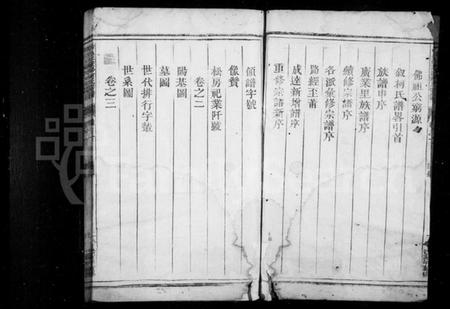 佛祖公窮源
敘柯氏譜畧引首
族譜申序
廣業里族譜序
續修宗譜序
各派彙修宗譜序
路經至首
成達新增譜序
重修宗譜新序
領譜字號
像贊
松房祀業阡號
卷之二
陽基圖
墓圖
世代排行字輩
世系圖
卷之三